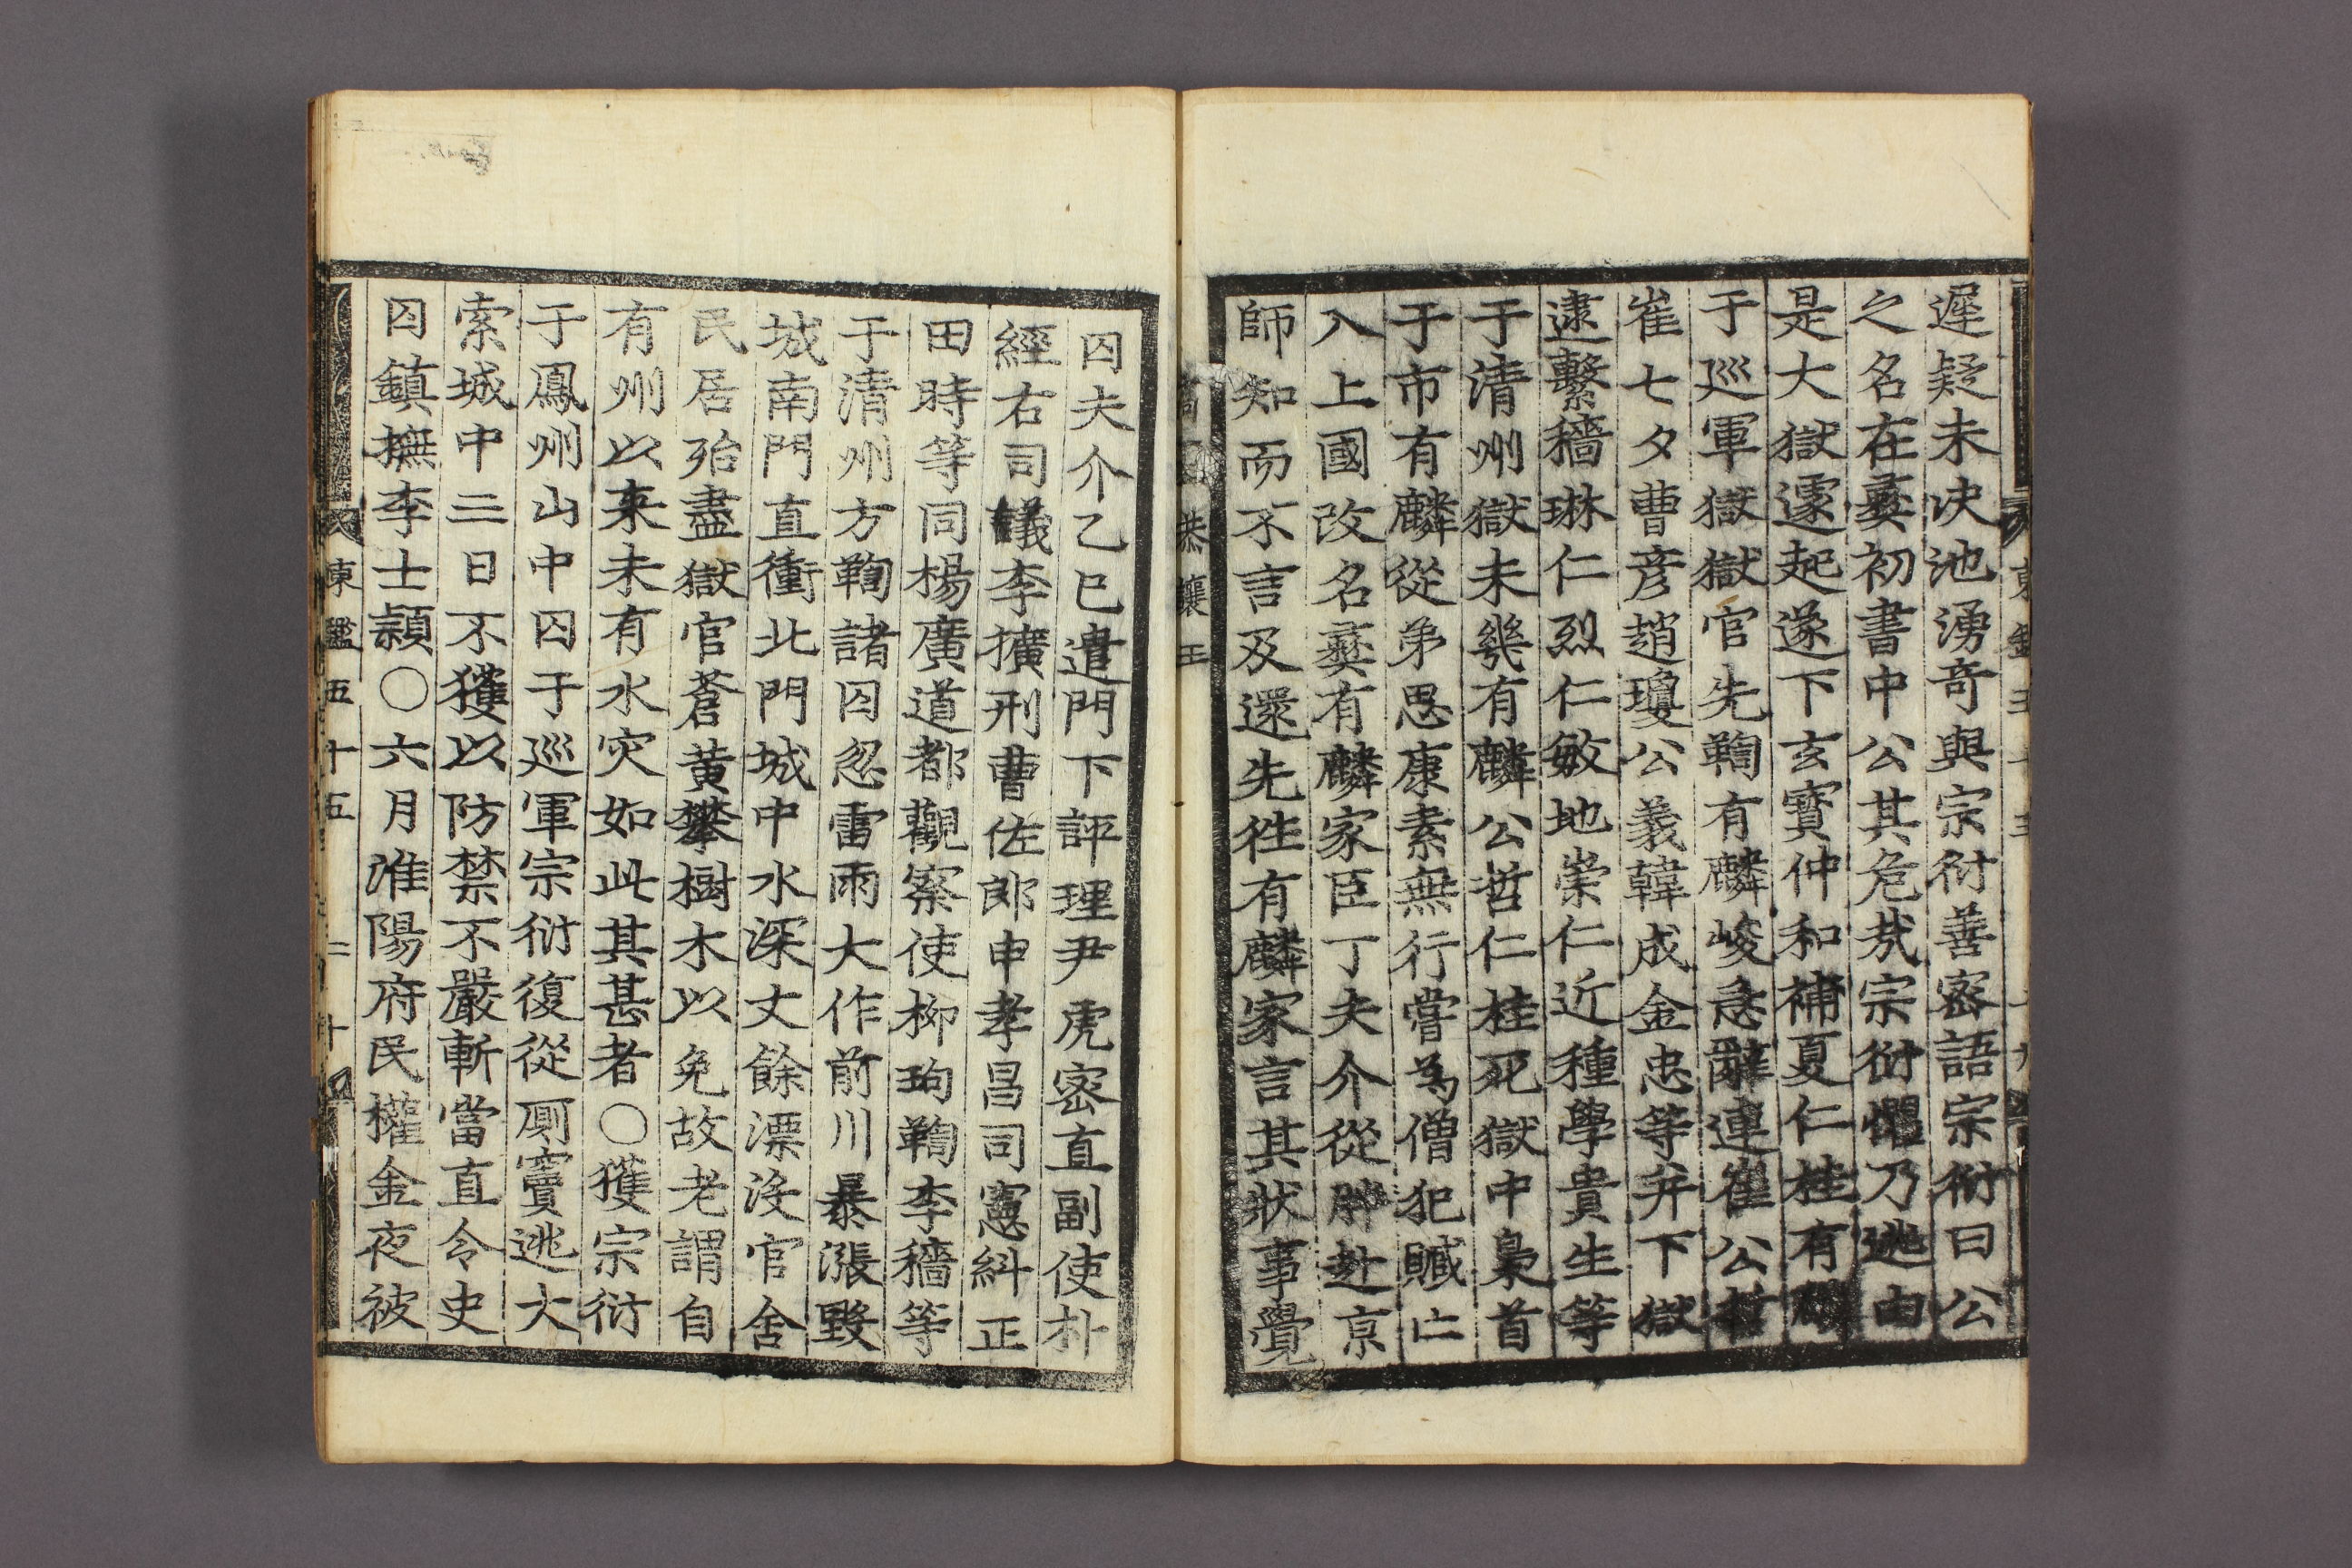 遲疑未决池湧奇與宗衍善密語宗衍曰公
之名在彝初書中公其危㢤宗衍懼乃逃由
是大獄遽起遂下玄寳仲和補夏仁桂有麟
于巡軍獄獄官先鞫有麟峻急辭連崔公哲
崔七夕曹彦趙瓊公義韓成金忠等并下獄
逮繫穡琳仁烈仁敏地崇仁近種學貴生等
于清州獄未幾有麟公哲仁桂死獄中梟首
于市有麟從弟思康素無行嘗為僧犯贓亡
入上國改名彝有麟家臣丁夫介從胖赴京
師知而不言及還先徃有麟家言其狀事覺
高 恭讓王
囚夫介乙巳遣門下評理尹虎密直副使朴
經右司議李擴刑曹佐郎申孝昌司憲糾正
田時等同楊廣道都觀察使柳珣鞫李穡等
于清州方鞫諸囚忽雷雨大作前川暴漲毀
城南門直衝北門城中水深丈餘漂没官舍
民居殆盡獄官蒼黄攀樹木以免故老謂自
有州以来未有水灾如此其甚者○獲宗衍
于鳳州山中囚于巡軍宗衍復從厠竇逃大
索城中二日不獲以防禁不嚴斬當直令史
囚鎮撫李士頴○六月淮陽府民權金夜被
東鑑五十五 二十